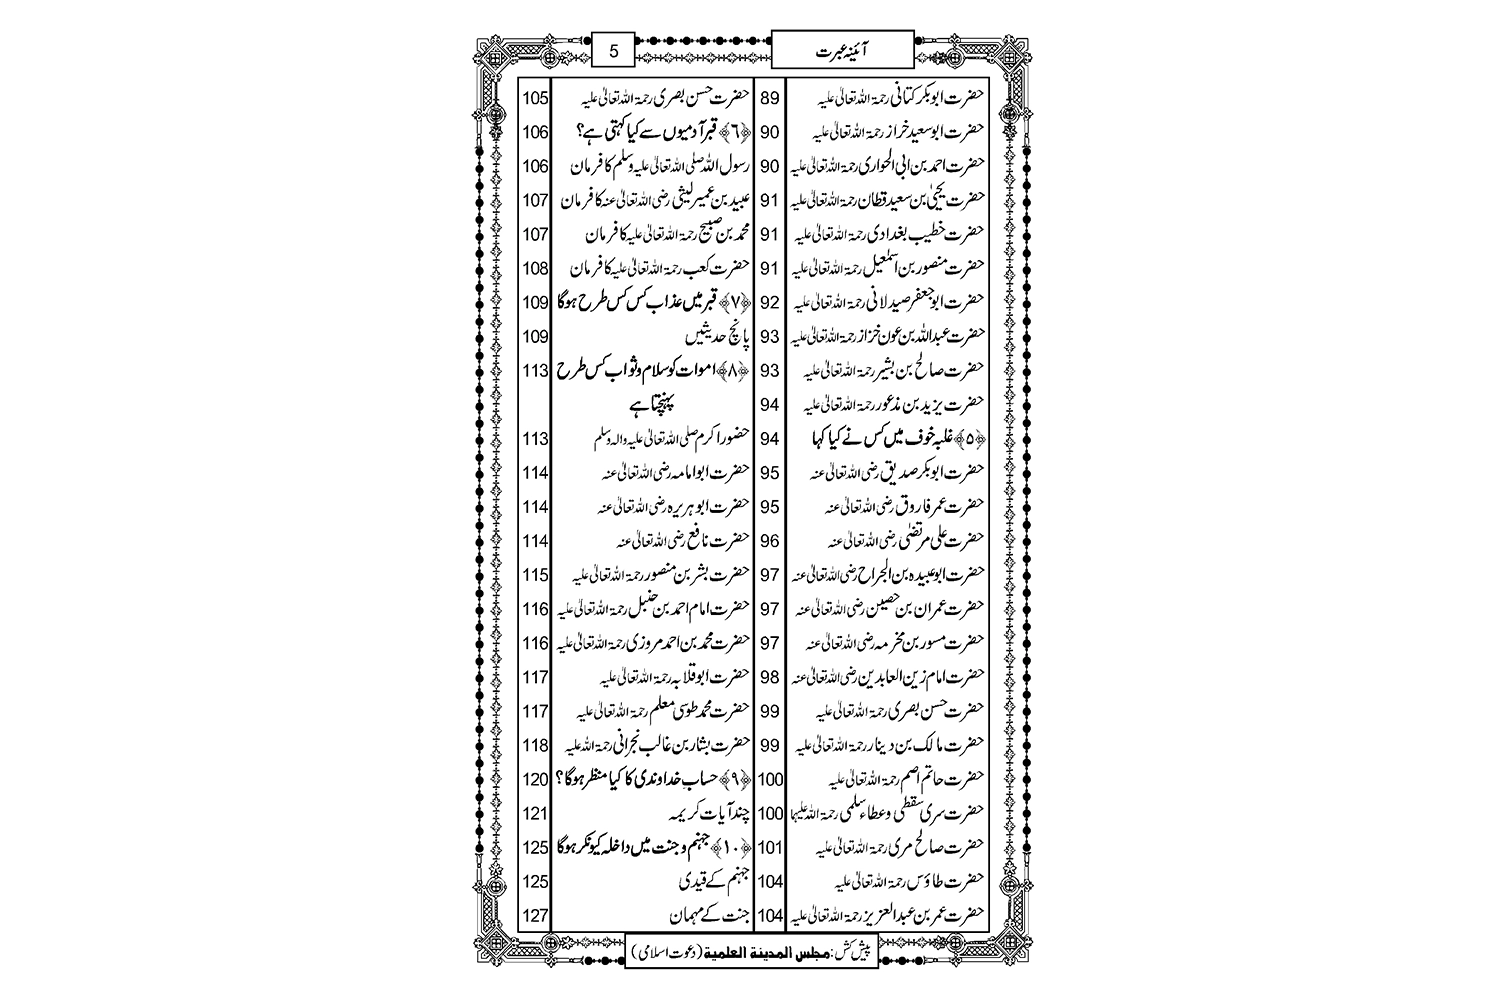 آئینہ عبرت
5
حضرت ابوبکر کتانی رحمۃ اللہ تعالیٰ علیہ 89
حضرت ابوسعید خراز رحمۃ اللہ تعالیٰ علیہ 90
حضرت احمد بن ابی الحواری رحمۃ اللہ تعالیٰ علیہ 90
حضرت یحییٰ بن سعید قطان رحمۃ اللہ تعالیٰ علیہ 91
حضرت خطیب بغدادی رحمۃ اللہ تعالیٰ علیہ 91
حضرت منصور بن اسمٰعیل رحمۃ اللہ تعالیٰ علیہ 91
حضرت ابوجعفر صیدلانی رحمۃ اللہ تعالیٰ علیہ 92
حضرت عبداللہ بن عون خزاز رحمۃ اللہ تعالیٰ علیہ 93
حضرت صالح بن بشیر رحمۃ اللہ تعالیٰ علیہ 93
حضرت یزید بن مذعور رحمۃ اللہ تعالیٰ علیہ 94
﴿۵﴾ غلبہ خوف میں کس نے کیا کہا 94
حضرت ابوبکر صدیق رضی اللہ تعالیٰ عنہ 95
حضرت عمر فاروق رضی اللہ تعالیٰ عنہ 95
حضرت علی مرتضٰی رضی اللہ تعالیٰ عنہ 96
حضرت ابوعبیدہ بن الجراح رضی اللہ تعالیٰ عنہ 97
حضرت عمران بن حصین رضی اللہ تعالیٰ عنہ 97
حضرت مسور بن مخرمہ رضی اللہ تعالیٰ عنہ 97
حضرت امام زین العابدین رضی اللہ تعالیٰ عنہ 98
حضرت حسن بصری رحمۃ اللہ تعالیٰ علیہ 99
حضرت مالک بن دینار رحمۃ اللہ تعالیٰ علیہ 99
حضرت حاتم اصم رحمۃ اللہ تعالیٰ علیہ 100
حضرت سری سقطی وعطاء سلمی رحمۃ اللہ علیہا 100
حضرت صالح مری رحمۃ اللہ تعالیٰ علیہ 101
حضرت طاؤس رحمۃ اللہ تعالیٰ علیہ 104
حضرت عمر بن عبدالعزیز رحمۃ اللہ تعالیٰ علیہ 104
حضرت حسن بصری رحمۃ اللہ تعالیٰ علیہ 105
﴿۶﴾ قبر آدمیوں سے کیا کہتی ہے؟ 106
رسول اللہ صلی اللہ تعالیٰ علیہ وسلم کا فرمان 106
عبید بن عمیر لیثی رضی اللہ تعالیٰ عنہ کا فرمان 107
محمد بن صبیح رحمۃ اللہ تعالیٰ علیہ کا فرمان 107
حضرت کعب رحمۃ اللہ تعالیٰ علیہ کا فرمان 108
﴿۷﴾ قبر میں عذاب کس کس طرح ہوگا 109
پانچ حدیثیں 109
﴿۸﴾ اموات کو سلام وثواب کس طرح 113
پہنچتا ہے
حضور اکرم صلی اللہ تعالیٰ علیہ والہ وسلم 113
حضرت ابوامامہ رضی اللہ تعالیٰ عنہ 114
حضرت ابوہریرہ رضی اللہ تعالیٰ عنہ 114
حضرت نافع رضی اللہ تعالیٰ عنہ 114
حضرت بشر بن منصور رحمۃ اللہ تعالیٰ علیہ 115
حضرت امام احمد بن حنبل رحمۃ اللہ تعالیٰ علیہ 116
حضرت محمد بن احمد مروزی رحمۃ اللہ تعالیٰ علیہ 116
حضرت ابوقلابہ رحمۃ اللہ تعالیٰ علیہ 117
حضرت محمد طوسی معلم رحمۃ اللہ تعالیٰ علیہ 117
حضرت بشار بن غالب نجرانی رحمۃ اللہ علیہ 118
﴿۹﴾ حساب خداوندی کا کیا منظر ہوگا؟ 120
چند آیات کریمہ 121
﴿۱۰﴾ جہنم وجنت میں داخلہ کیونکر ہوگا 125
جہنم کے قیدی 125
جنت کے مہمان 127
پیش کش: مجلس المدینۃ العلمیۃ (دعوت اسلامی)